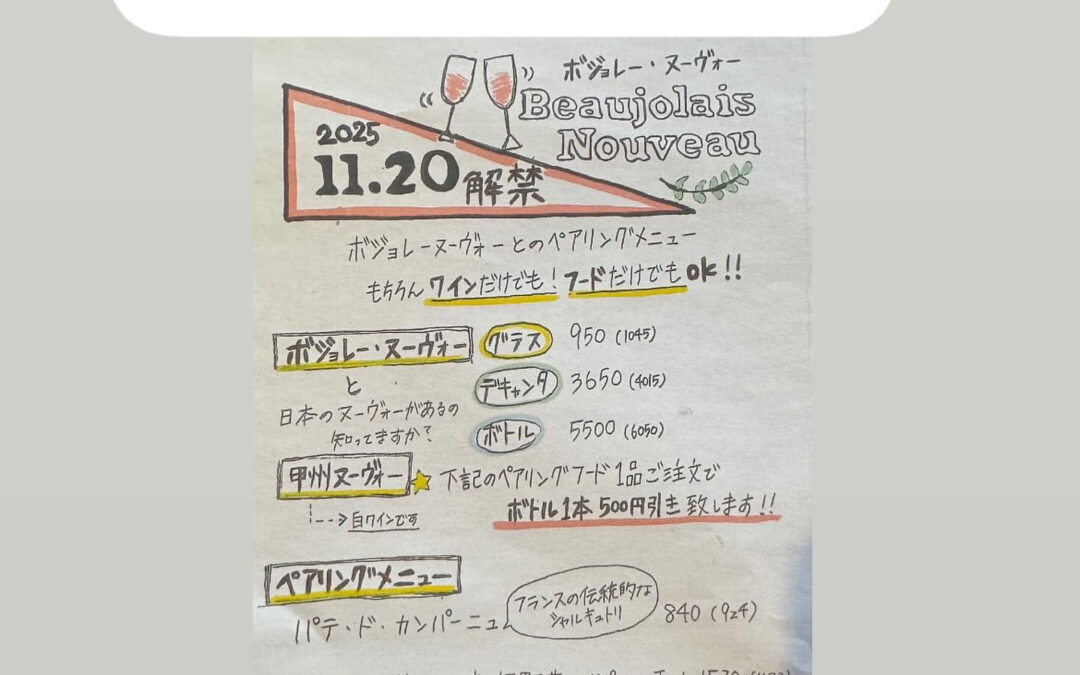 ボジョレー・ヌーヴォー
Beaujolais
Nouveau
2025
11.20 解禁
ボジョレーヌーヴォーとのペアリングメニュー
もちろん ワインだけでも! フードだけでも ok!!
ボジョレー・ヌーヴォー グラス 950 (1045)
と デキャンタ 3650 (4015)
日本のヌーヴォーがあるの
知ってますか? ボトル 5500 (6050)
甲州ヌーヴォー 下記のペアリングフード1品ご注文で
白ワインです ボトル1本500円引き致します!!
ペアリングメニュー
パテ・ド・カンパーニュ フランスの伝統的な
シャルキュトリ 840 (924)